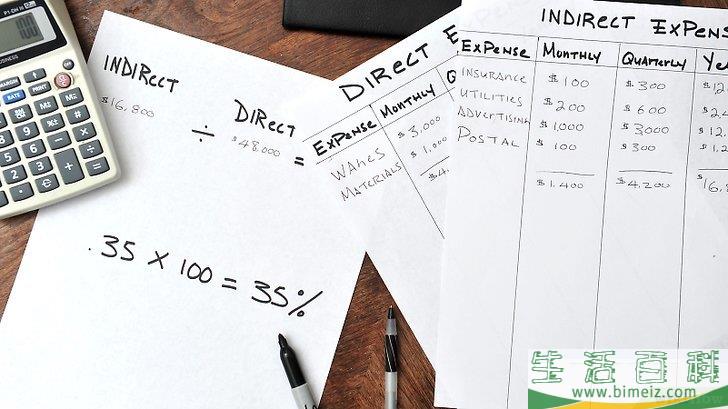 INDIRECT
$16,800
÷
DIRECT
$48,000
=
.35 x 100 = 35%
DIRECT
EXPENSE MONTHLY
WAGES $3,000
MATERIALS $1,000
INDIRECT EXPENS
EXPENSE MONTHLY QUARTERLY
INSURANCE $100 $300
UTILITIES $200 $600
ADVERTISING $1,000 $3000
POSTAL $100 $300
$1.400 $4.200
生活百科
www.bimeiz.com